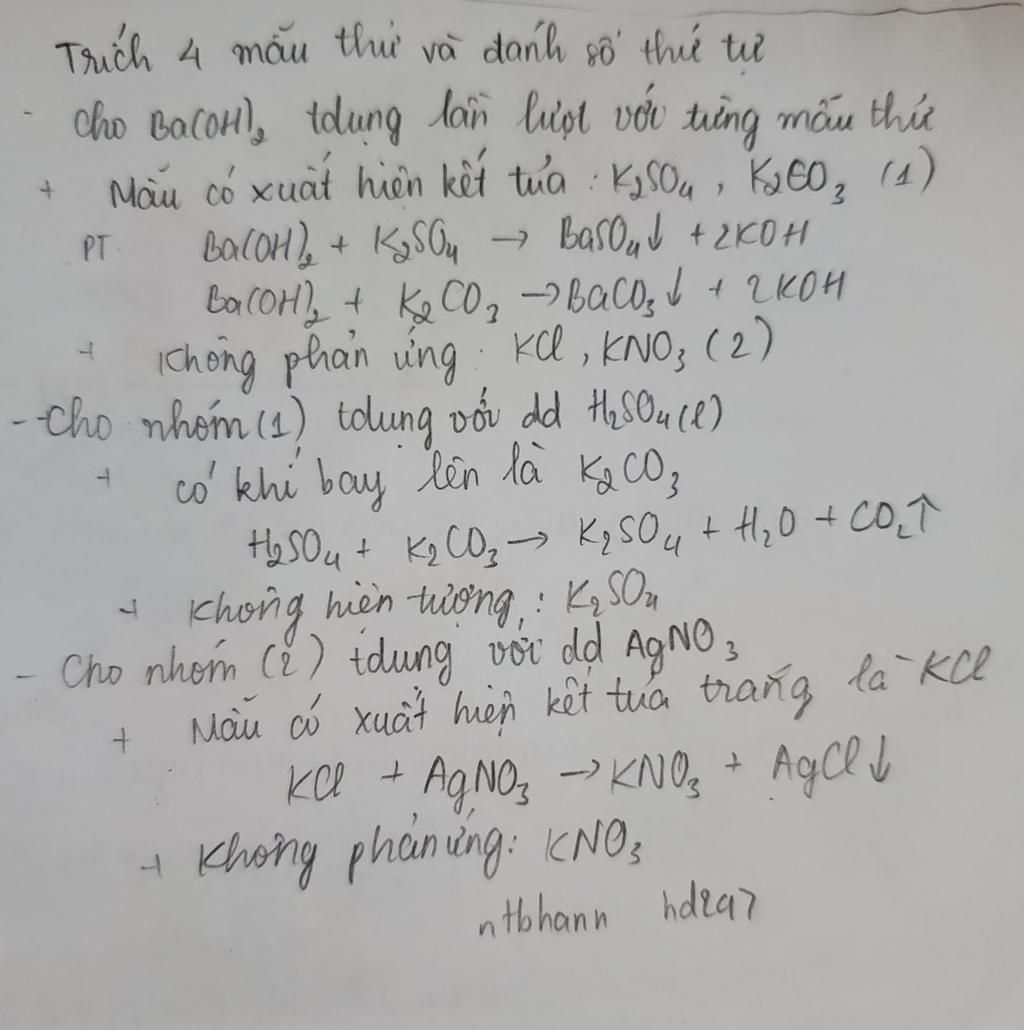 Trích 4 mẫu thử và đánh số thứ tự
- Cho Ba(OH)₂ tdụng lần lượt với từng mẫu thử
+ Mẫu có xuất hiện kết tủa : K₂SO₄, K₂CO₃ (1)
PT. Ba(OH)₂ + K₂SO₄ → BaSO₄↓ + 2KOH
Ba(OH)₂ + K₂CO₃ → BaCO₃↓ + 2KOH
+ Không phản ứng : KCl, KNO₃ (2)
- Cho nhóm (1) tdụng với dd H₂SO₄(l)
+ có khí bay lên là K₂CO₃
H₂SO₄ + K₂CO₃ → K₂SO₄ + H₂O + CO₂↑
+ Không hiện tượng : K₂SO₄
- Cho nhóm (2) tdụng với dd AgNO₃
+ Mẫu có xuất hiện kết tủa trắng là KCl
KCl + AgNO₃ → KNO₃ + AgCl↓
+ Không phản ứng : KNO₃
ntbhann hd2a7